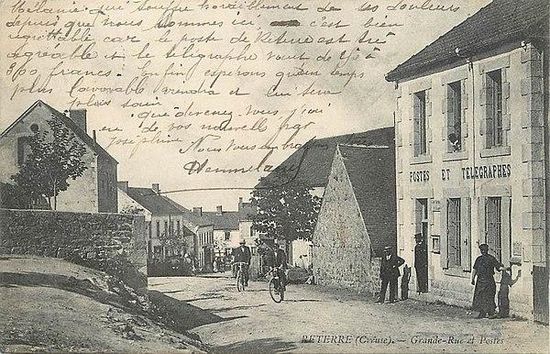 Mélanie qui souffre horriblement de ses douleurs
depuis que nous sommes ici c'est bien
regrettable car le poste de Reterre est très
agréable et le télégraphe vaut de 4 à
300 francs. Enfin espérons qu'un temps
plus favorable viendra et lui sera
plus sain
que devenez vous j'ai
eu de vos nouvelles par
Joséphine
Nous vous
POSTES ET TELEGRAPHES
RETERRE (Creuse). — Grande-Rue et Postes